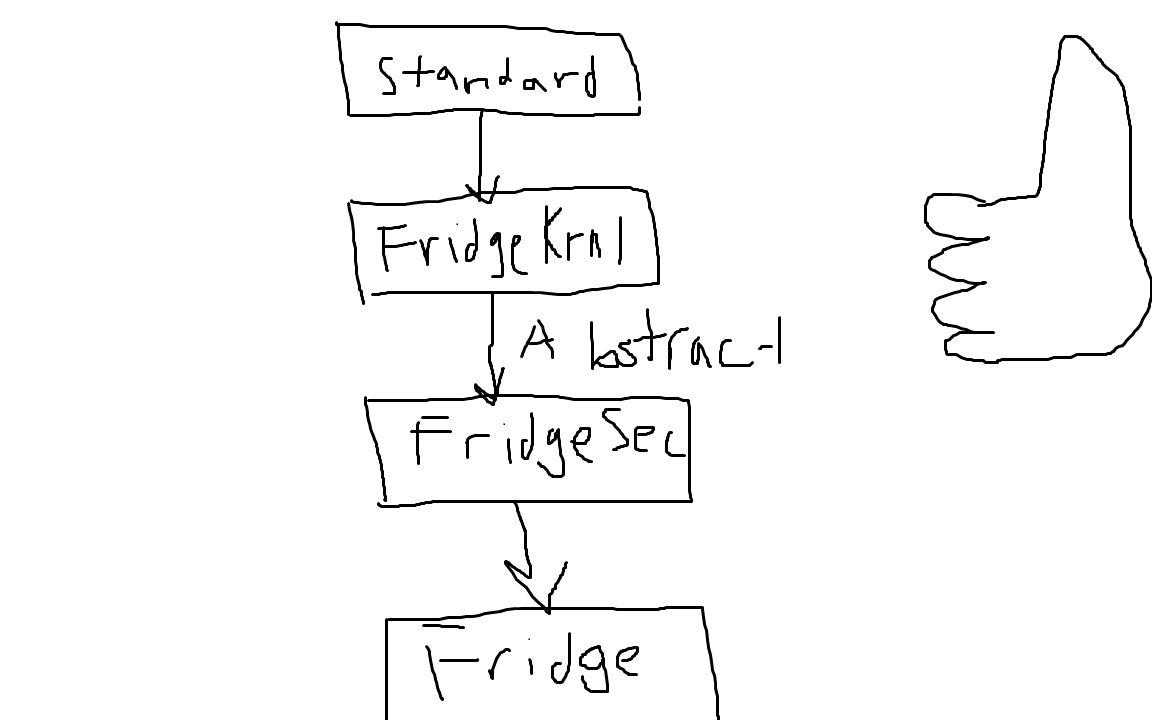 Standard
FridgeKrnl
Abstract
FridgeSec
Fridge